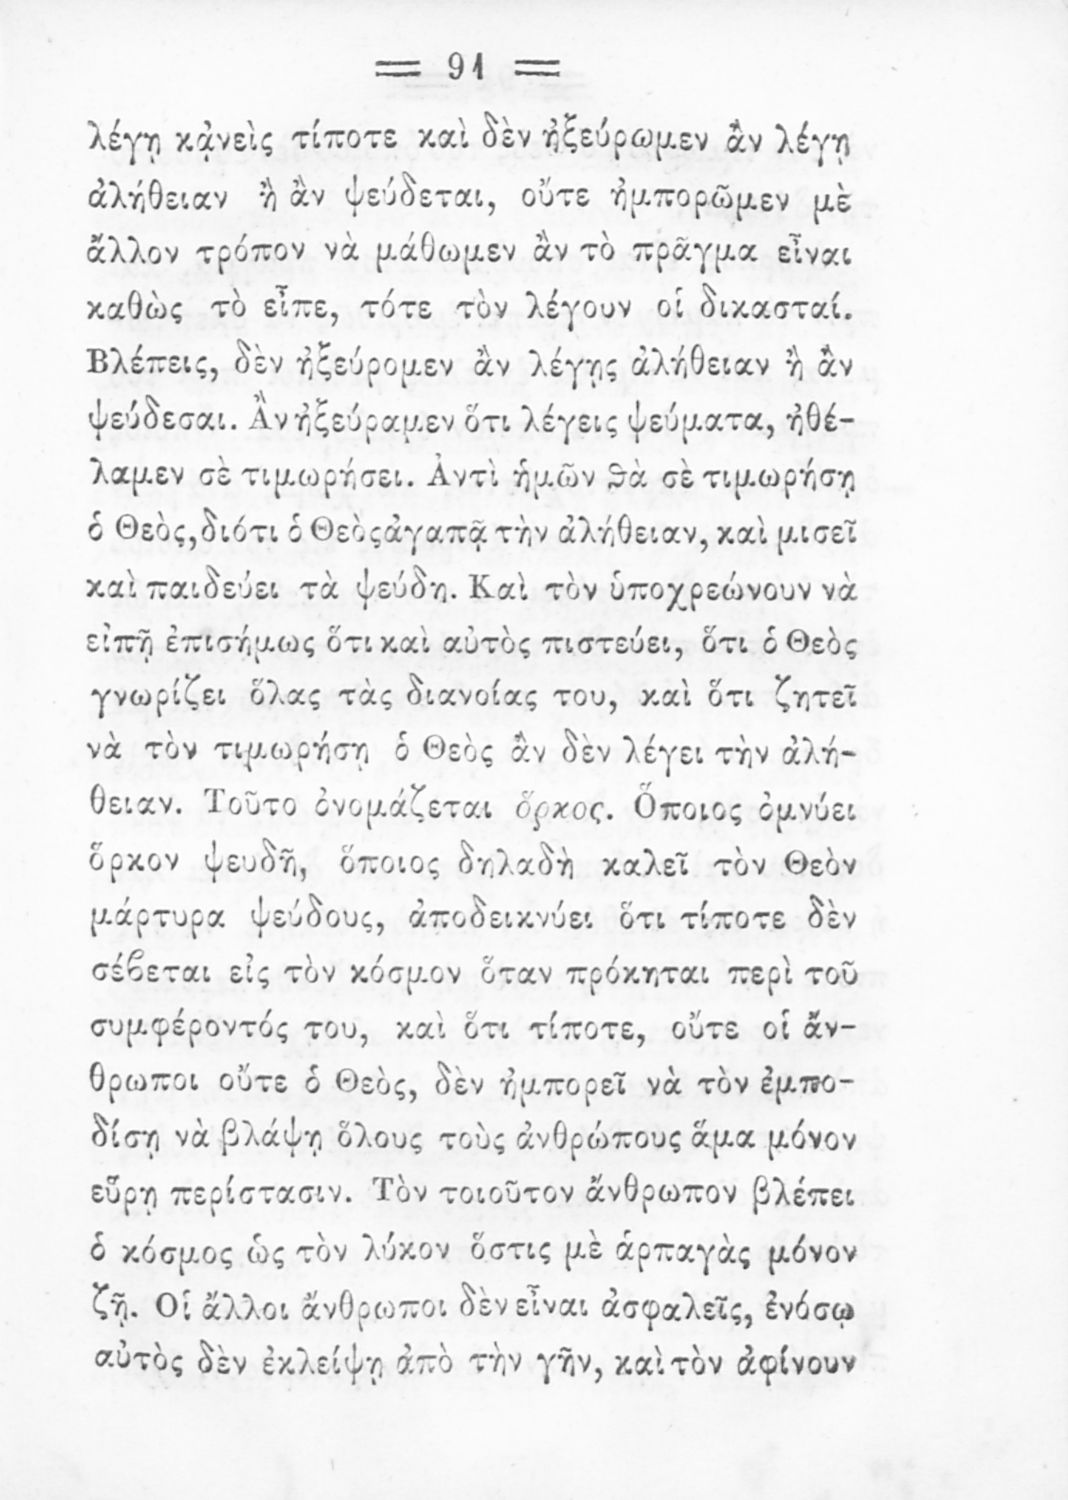 = 91 =
λέγῃ κᾀνεὶς τίποτε καὶ δὲν ἠξεύρωμεν ἂν λέγῃ
ἀλήθειαν ἢ ἂν ψεύδεται, οὔτε ἠμπορῶμεν μὲ
ἄλλον τρόπον νὰ μάθωμεν ἂν τὸ πρᾶγμα εἶναι
καθὼς τὸ εἶπε, τότε τὸν λέγουν οἱ δικασταί.
Βλέπεις, δὲν ἠξεύρομεν ἂν λέγῃς ἀλήθειαν ἢ ἂν
ψεύδεσαι. Ἂν ἠξεύραμεν ὅτι λέγεις ψεύματα, ἠθέ-
λαμεν σὲ τιμωρήσει. Ἀντὶ ἡμῶν ϑὰ σὲ τιμωρήσῃ
ὁ Θεὸς, διότι ὁ Θεὸς ἀγαπᾷ τὴν ἀλήθειαν, καὶ μισεῖ
καὶ παιδεύει τὰ ψεύδη. Καὶ τὸν ὑποχρεώνουν νὰ
εἰπῇ ἐπισήμως ὅτι καὶ αὐτὸς πιστεύει, ὅτι ὁ Θεὸς
γνωρίζει ὅλας τὰς διανοίας του, καὶ ὅτι ζητεῖ
νὰ τὸν τιμωρήσῃ ὁ Θεὸς ἂν δὲν λέγει τὴν ἀλή-
θειαν. Τοῦτο ὀνομάζεται ὅρκος. Ὅποιος ὀμνύει
ὅρκον ψευδῆ, ὅποιος δηλαδὴ καλεῖ τὸν Θεὸν
μάρτυρα ψεύδους, ἀποδεικνύει ὅτι τίποτε δὲν
σέϐεται εἰς τὸν κόσμον ὅταν πρόκηται περὶ τοῦ
συμφέροντός του, καὶ ὅτι τίποτε, οὔτε οἱ ἄν-
θρωποι οὔτε ὁ Θεὸς, δὲν ἠμπορεῖ νὰ τὸν ἐμπο-
δίσῃ νὰ βλάψῃ ὅλους τοὺς ἀνθρώπους ἅμα μόνον
εὕρῃ περίστασιν. Τὸν τοιοῦτον ἄνθρωπον βλέπει
ὁ κόσμος ὡς τὸν λύκον ὅστις μὲ ἁρπαγὰς μόνον
ζῇ. Οἱ ἄλλοι ἄνθρωποι δὲν εἶναι ἀσφαλεῖς, ἐνόσῳ
αὐτὸς δὲν ἐκλείψῃ ἀπὸ τὴν γῆν, καὶ τὸν ἀφίνουν